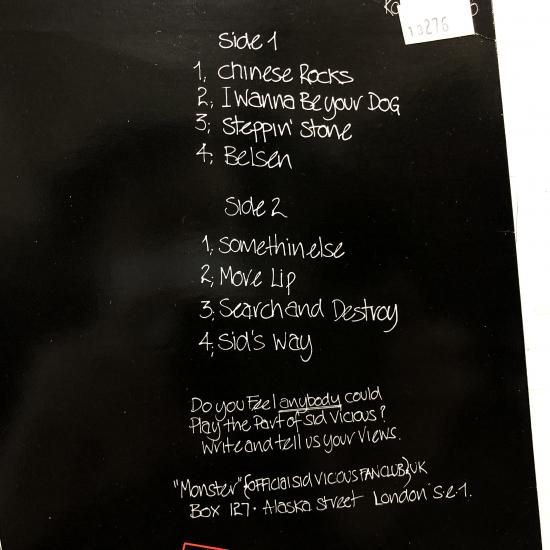 13276
Side 1
1, Chinese Rocks
2, I Wanna Be your Dog
3; Steppin' Stone
4; Belsen
Side 2
1, Somethin else
2; Move Lip
3; Search and Destroy
4; Sid's Way
Do you Feel anybody could
Play the Part of Sid Vicious?
Write and tell us your Views.
"Monster" {OFFICIAL SID VICOUS FANCLUB} UK
BOX 127. Alaska Street London S.E.1.